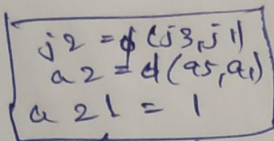 j2 = ϕ(j3,j1)
a2 = ϕ(a5,a1)
a21 = 1